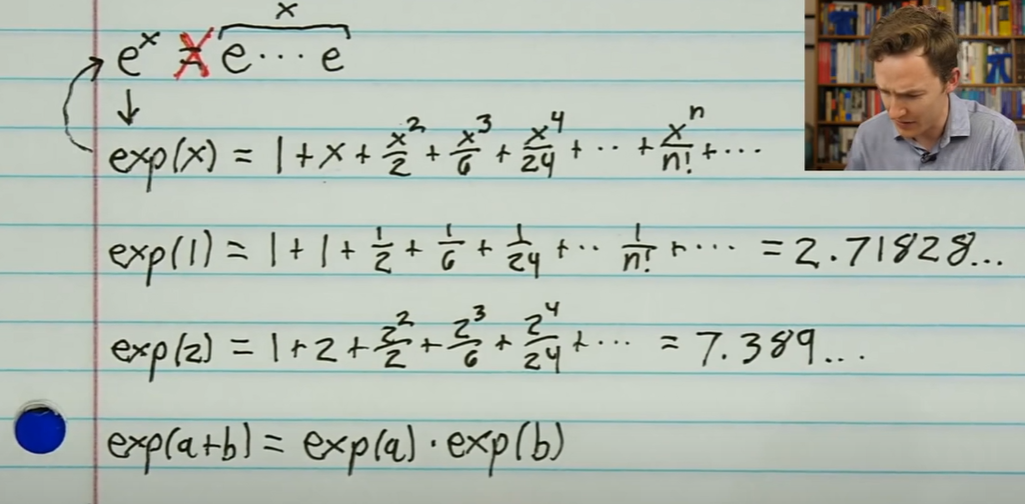 x
eˣ = e⋯e
exp(x) = 1 + x + x²/2 + x³/6 + x⁴/24 + ·· + xⁿ/n! + ⋯
exp(1) = 1 + 1 + 1/2 + 1/6 + 1/24 + ·· 1/n! + ⋯ = 2.71828...
exp(2) = 1 + 2 + 2²/2 + 2³/6 + 2⁴/24 + ⋯ = 7.389...
exp(a+b) = exp(a)·exp(b)